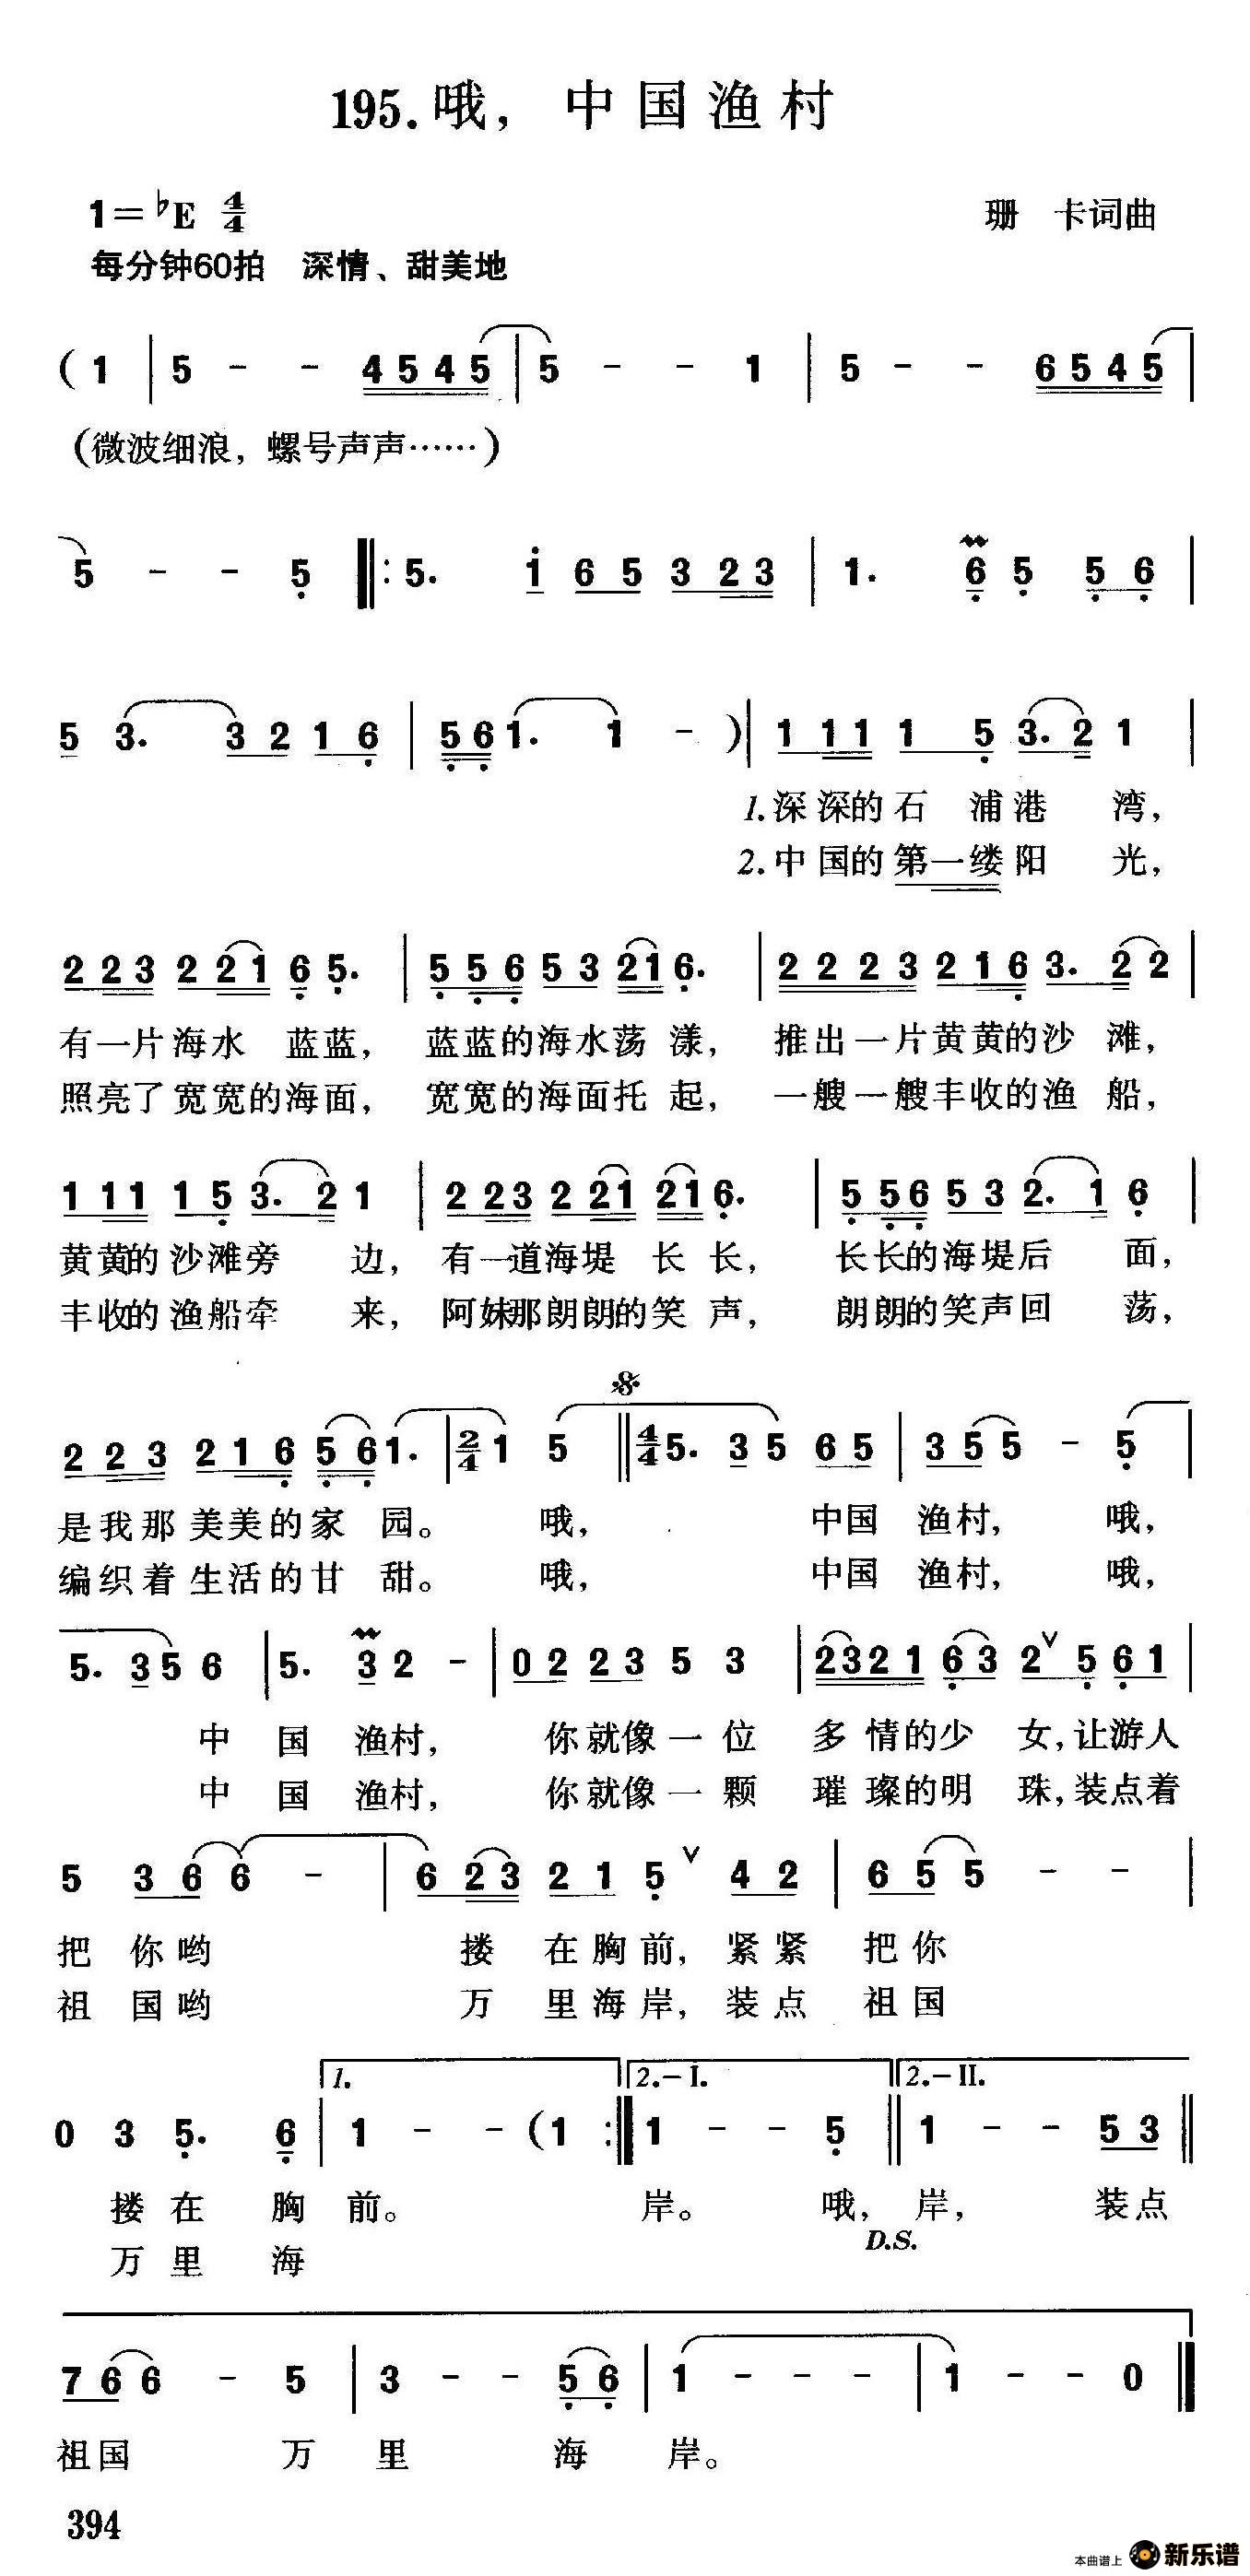 195. 哦，中国渔村
1=♭E 4/4
珊　卡词曲
每分钟60拍　深情、甜美地
( 1 | 5 - - 4545 | 5 - - 1 | 5 - - 6545 |
(微波细浪，螺号声声……)
5 - - 5 ‖: 5. 1 65 323 | 1. 6 5 56 |
5 3. 32 16 | 56 1. 1 - ) | 1 11 1 5 3. 2 1 |
1.深深的石浦港湾，
2.中国的第一缕阳光，
2 23 2 21 6 5. | 5 56 53 21 6. | 2 2 2 3 2 16 3. 2 2 |
有一片海水 蓝蓝， 蓝蓝的海水荡漾， 推出一片黄黄的沙滩，
照亮了宽宽的海面， 宽宽的海面托起， 一艘一艘丰收的渔船，
1 11 1 5 3. 2 1 | 2 23 2 21 21 6. | 5 56 53 2. 1 6 |
黄黄的沙滩旁边， 有一道海堤 长长， 长长的海堤后面，
丰收的渔船牵来， 阿妹那朗朗的笑声， 朗朗的笑声回荡，
2 2 3 2 1 6 5 6 1. | 2/4 1 5 ‖ 4/4 5. 3 5 65 | 3 5 5 - 5 |
是我那美美的家园。 哦， 中国渔村， 哦，
编织着生活的甘甜。 哦， 中国渔村， 哦，
5. 3 5 6 | 5. 3 2 - | 02 23 5 3 | 2321 63 2 5 61 |
中国渔村， 你就像一位多情的少女，让游人
中国渔村， 你就像一颗璀璨的明珠，装点着
5 3 6 6 - | 6 23 21 5 42 | 6 5 5 - - |
把你哟 搂在胸前，紧紧把你
祖国哟 万里海岸，装点祖国
1. 2.-I. 2.-II.
0 3 5. 6 | 1 - - (1 :‖ 1 - - 5 ‖ 1 - - 53 ‖
搂在胸前。 岸。 哦， 岸， 装点
D.S.
万里海
7 6 6 - 5 | 3 - - 56 | 1 - - - | 1 - - 0 ‖
祖国 万里 海岸。
394
本曲谱上 新乐谱